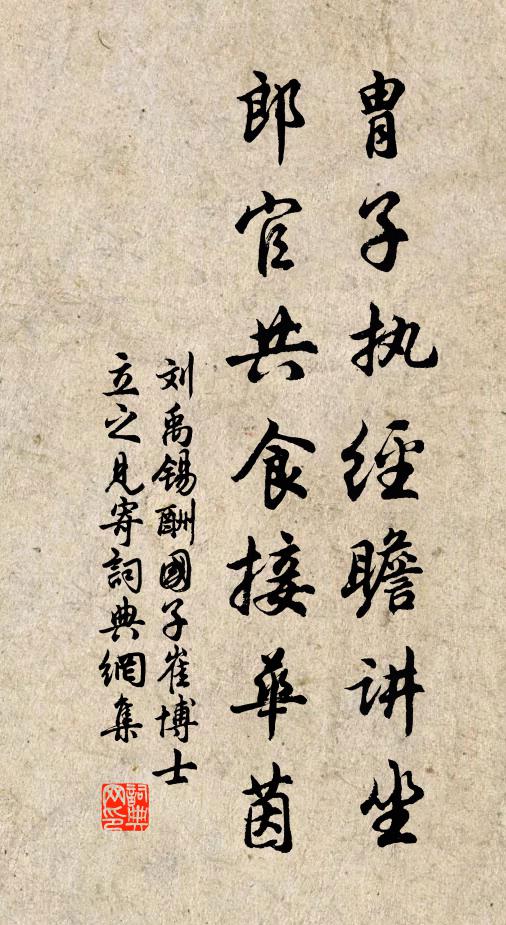 胄子执經瞻讲坐
郎官共食接华茵
刘禹锡酬國子崔博士
立之見寄詞典網集
詞典
网印